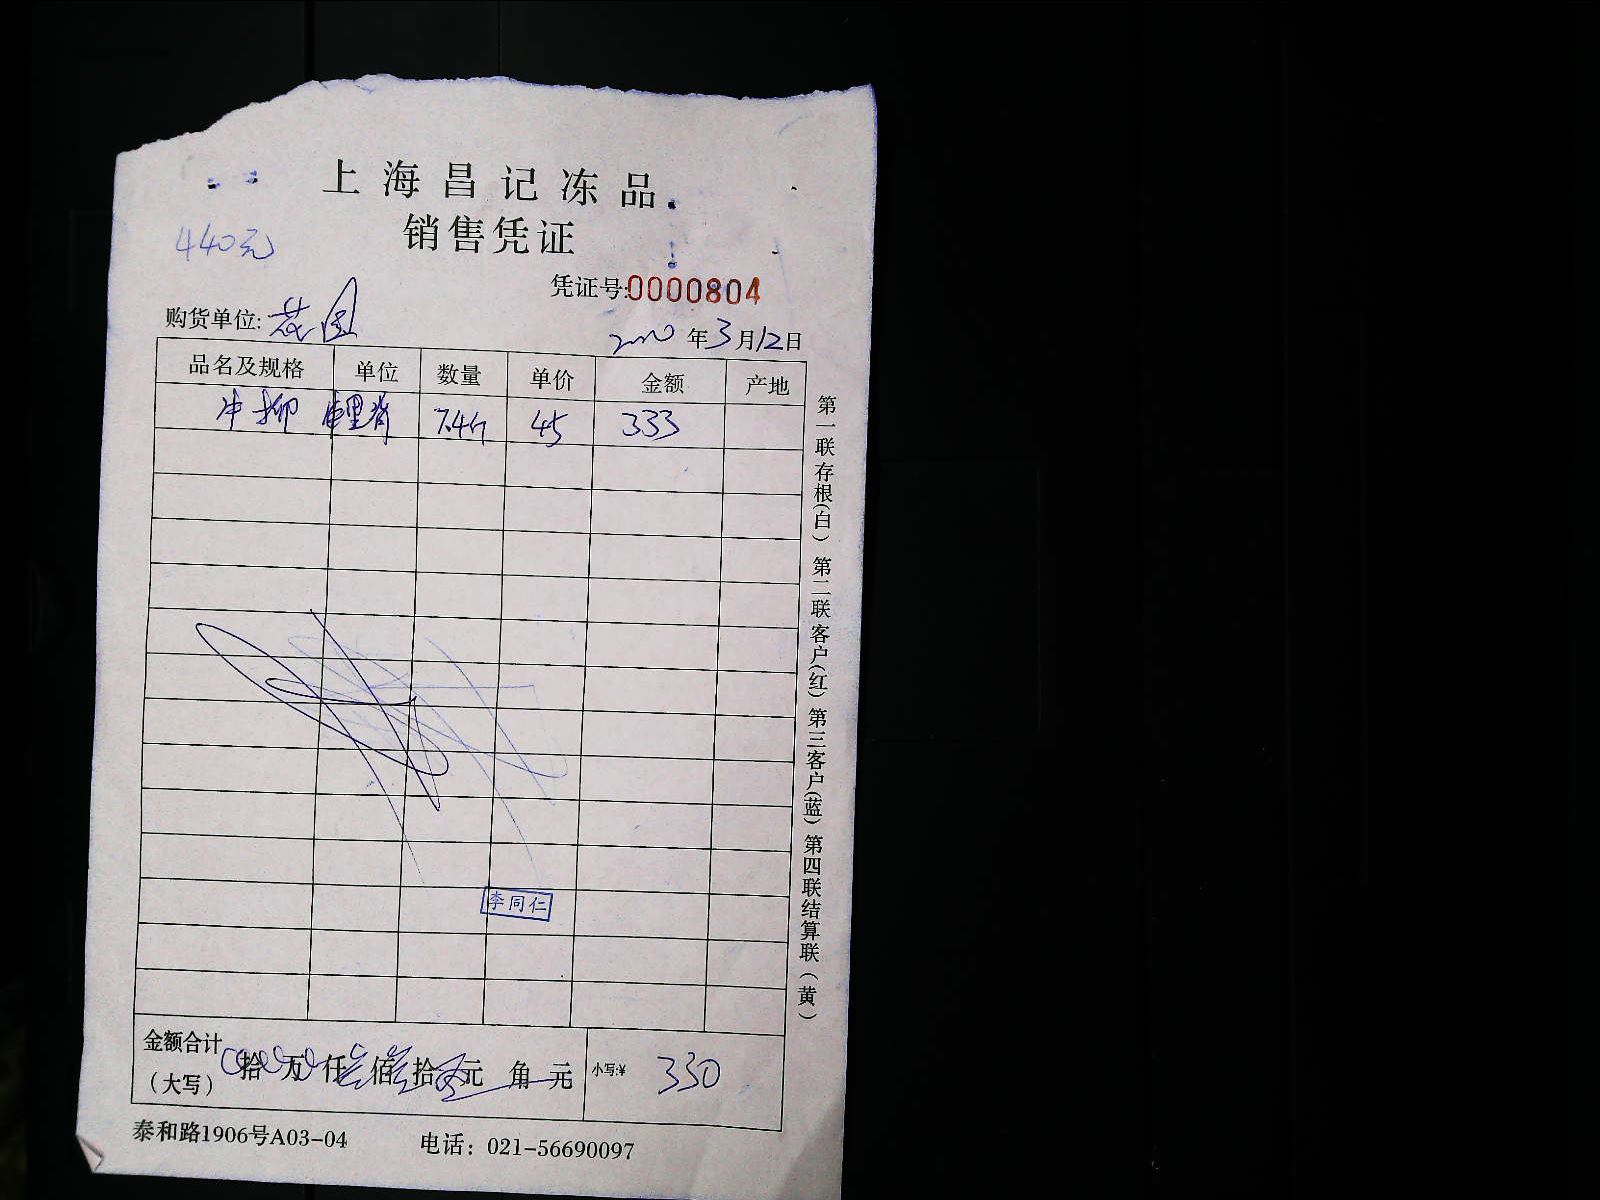 上海昌记冻品
销售凭证
440元
凭证号:0000804
购货单位: 花园
2020年3月12日
品名及规格 单位 数量 单价 金额 产地
牛柳 里脊 7.4斤 45 333
李同仁
金额合计
(大写) 拾 万 仟 叁佰 叁拾 元 角 元 小写:¥ 330
泰和路1906号A03-04 电话: 021-56690097
第一联存根(白) 第二联客户(红) 第三客户(蓝) 第四联结算联(黄)